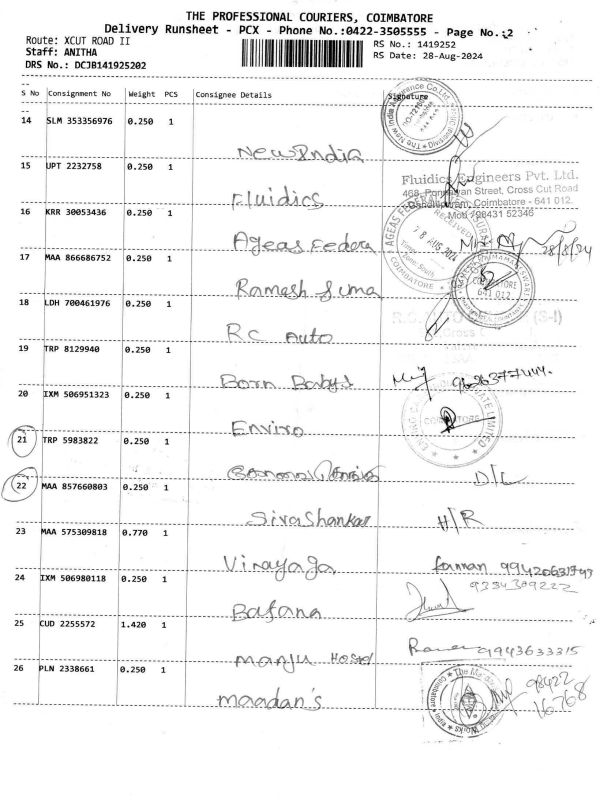 THE PROFESSIONAL COURIERS, COIMBATORE
Delivery Runsheet - PCX - Phone No.:0422-3505555 - Page No.:2
Route: XCUT ROAD II
RS No.: 1419252
Staff: ANITHA
RS Date: 28-Aug-2024
DRS No.: DCJB141925202
S No Consignment No Weight PCS Consignee Details Signature
14 SLM 353356976 0.250 1
New India
15 UPT 2232758 0.250 1
Fluidics Engineers Pvt. Ltd.
468, Street, Cross Cut Road
Coimbatore - 641 012.
Fluidics
16 KRR 30053436 0.250 1
Mob 798431 52346
RECEIVED
28 AUG 2024
COIMBATORE
Ageas Federa
28/8/24
17 MAA 866686752 0.250 1
COIMBATORE
641 012
Ramesh
18 LDH 700461976 0.250 1
(S-I)
Cross
RC Auto
19 TRP 8129940 0.250 1
Born Babys
20 IXM 506951323 0.250 1
Enviro
21 TRP 5983822 0.250 1
D/L
22 MAA 857660803 0.250 1
Sivashankar H/R
23 MAA 575309818 0.770 1
Vinayaga
24 IXM 506980118 0.250 1
9334309222
Bafana
25 CUD 2255572 1.420 1
9943633315
Manju Hostel
26 PLN 2338661 0.250 1
98422
16768
maadan's